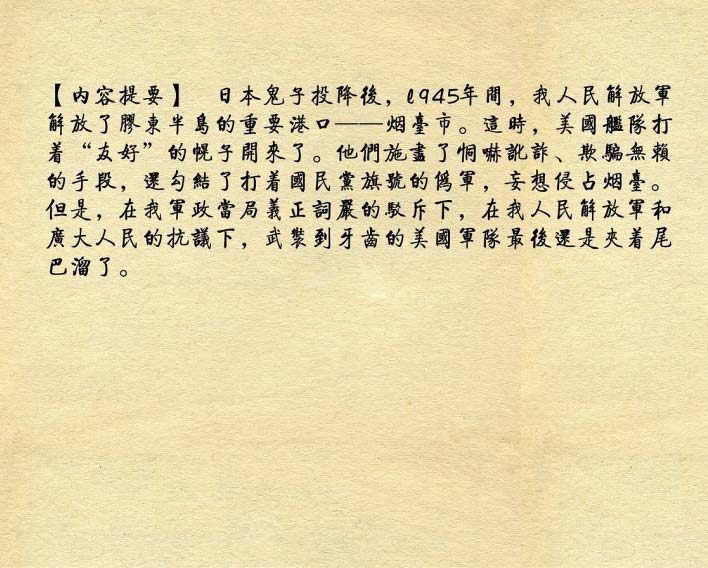 【内容提要】　日本鬼子投降後，1945年間，我人民解放軍
解放了膠東半島的重要港口——烟臺市。這時，美國艦隊打
着“友好”的幌子開來了。他們施盡了恫嚇訛詐、欺騙無賴
的手段，還勾結了打着國民黨旗號的僞軍，妄想侵占烟臺。
但是，在我軍政當局義正詞嚴的駁斥下，在我人民解放軍和
廣大人民的抗議下，武裝到牙齒的美國軍隊最後還是夾着尾
巴溜了。